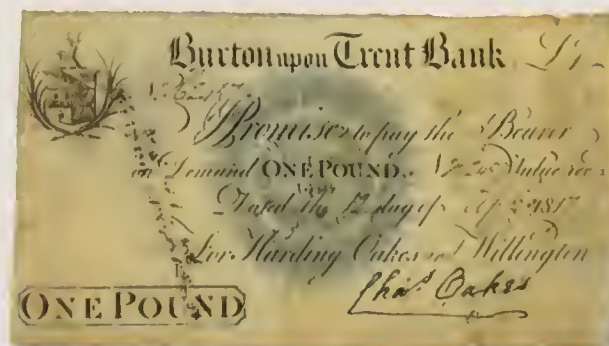 Burton upon Trent Bank £1-
I Promise to pay the Bearer
on Demand ONE POUND. Value rec
Dated the 12 day of 1817
For Harding Oakes and Willington
Chas. Oakes
ONE POUND